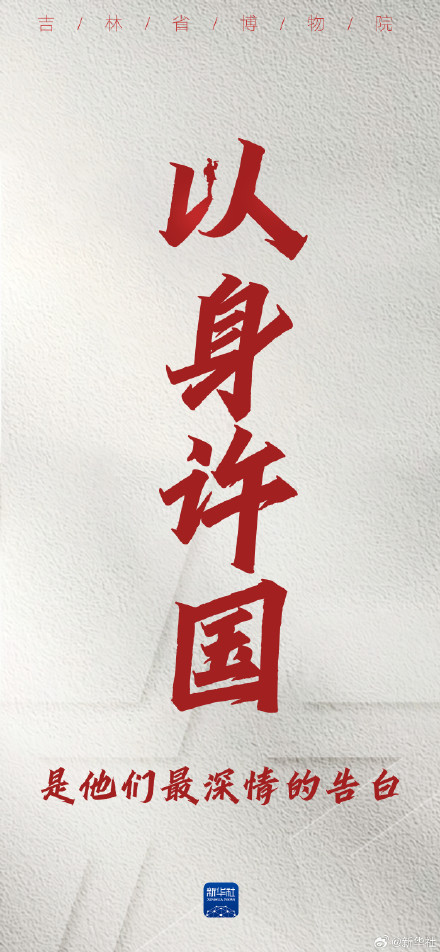 吉/林/省/博/物/院
以身许国
是他们最深情的告白
新华社
XINHUA NEWS
@新华社